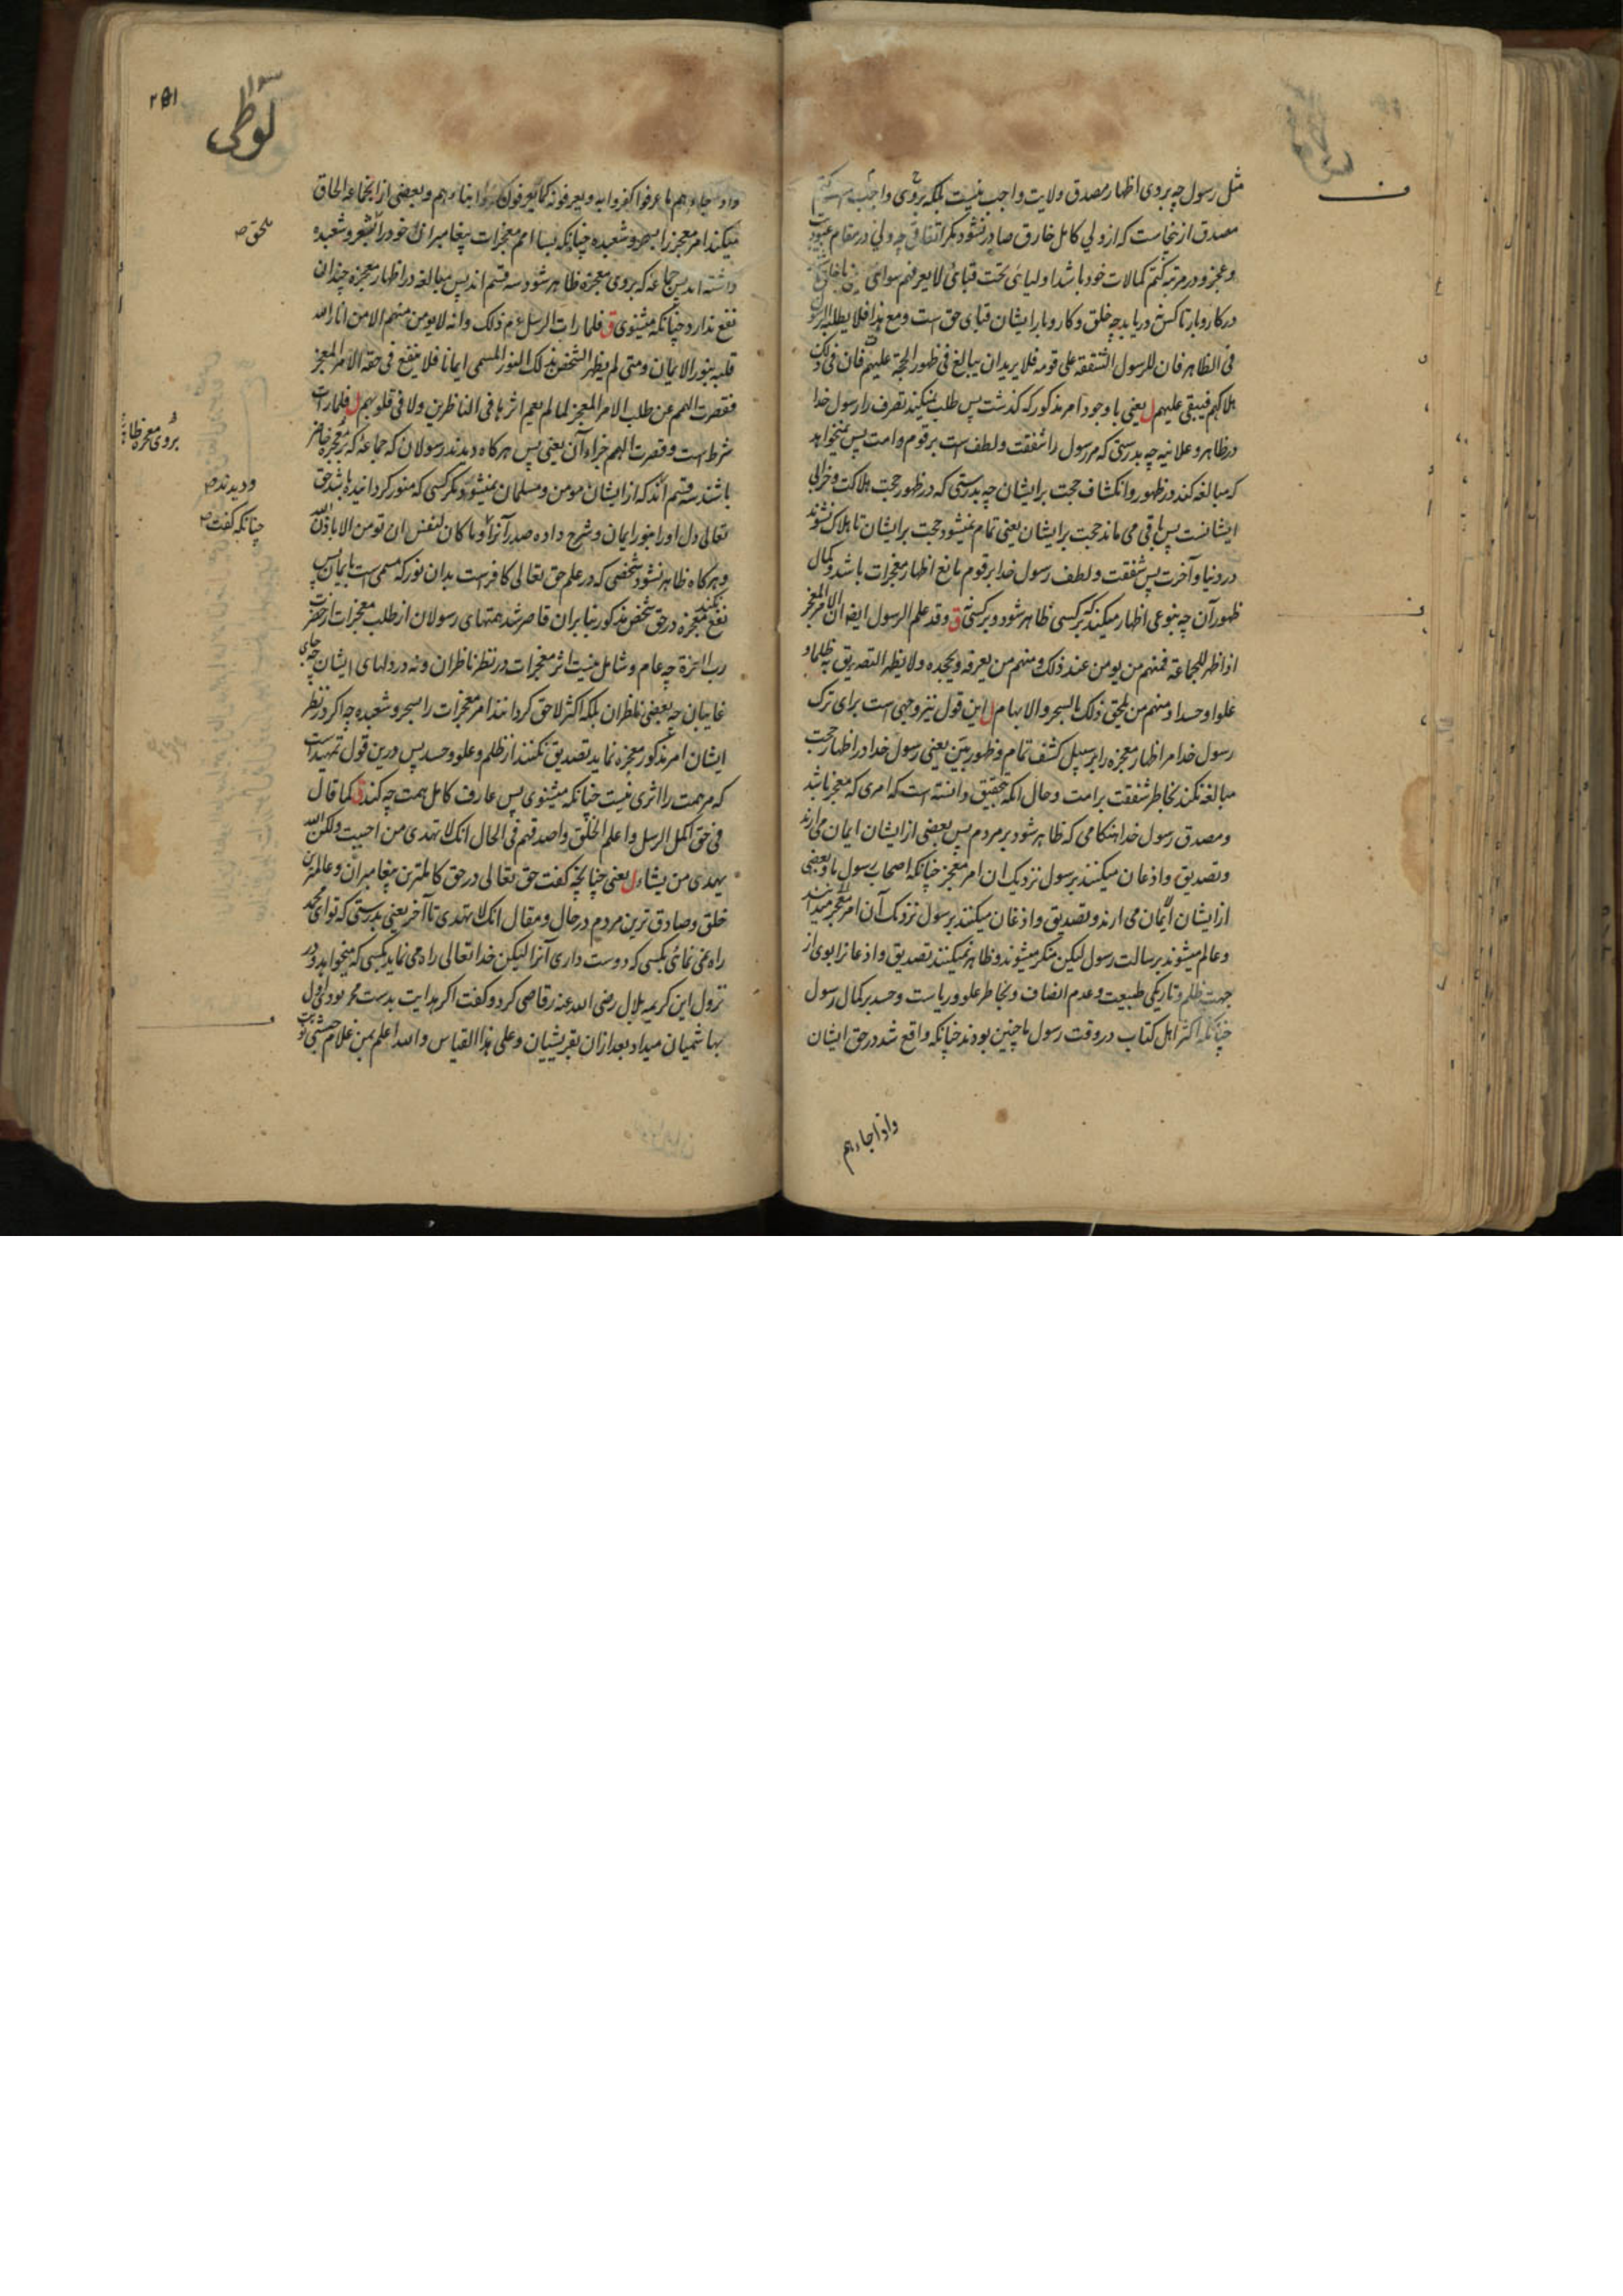 مثل رسول چه بروی اظهار مصدق ولایت واجب نیست بلکه بروی واجب است کتم
مصدق ازینجاست که از ولی کامل خارق صادر نشود مگر اتفاقی چه ولی در مقام عبودیت
وعجز و در مرتبه کتم کمالات خود باشد اولیائی تحت قبائی لا یعرفهم سوائی
در کاروبار تا کس دریابد چه خلق و کاروبار ایشان قبای حق است ومع هذا فلا یطلبه الرسول
فی الظاهر فان للرسول الشفقة علی قومه فلا یرید ان یبالغ فی ظهور الحجة علیهم فان فی ذلک
هلاکهم فیبقی علیهم ل یعنی با وجود امر مذکور که گذشت پس طلب نمیکند تصرف را رسول خدا
در ظاهر و علانیه چه بدرستی که مر رسول را شفقت و لطف است بر قوم وامت پس نمیخواهد
که مبالغه کند در ظهور وانکشاف حجت بر ایشان چه بدرستی که در ظهور حجت هلاکت و خرابی
ایشانست پس باقی می ماند حجت بر ایشان یعنی تمام نمیشود حجت بر ایشان تا هلاک نشوند
در دنیا و آخرت پس شفقت و لطف رسول خدا بر قوم مانع اظهار معجزات باشد و کمال
ظهور آن چه بنوعی اظهار میکند که بر کسی ظاهر شود و بر کسی نه ق وقد علم الرسول ایضا ان الامر المعجز
اذا ظهر للجماعة فمنهم من یومن عند ذلک ومنهم من یعرفه ویجحده ولا یظهر التصدیق به ظلما و
علوا وحسدا ومنهم من یلحق ذلک بالسحر والابهام ل این قول نیز وجهی است برای ترک
رسول خدا مر اظهار معجزه را بر سبیل کشف تمام و ظهور بین یعنی رسول خدا در اظهار حجت
مبالغه نکند بخاطر شفقت بر امت و حال آنکه بتحقیق دانسته است که امری که معجز باشد
ومصدق رسول خدا هنگامی که ظاهر شود بر مردم پس بعضی از ایشان ایمان می آرند
وتصدیق واذعان میکنند بر رسول نزدیک آن امر معجز چنانکه اصحاب رسول ما و بعضی
از ایشان ایمان می آرند و تصدیق واذعان میکنند بر رسول نزدیک آن امر معجز میدانند
وعالم میشوند برسالت رسول لیکن منکر میشوند و ظاهر نمیکنند تصدیق واذعان را بوی از
جهت ظلم و تاریکی طبیعت و عدم انصاف و بخاطر علو و ریاست و حسد بر کمال رسول
چنانکه اکثر اهل کتاب در وقت رسول ما چنین بودند چنانکه واقع شد در حق ایشان
واذا جاءهم
۲۵۱
لوطی
واذ جاءهم ما عرفوا کفروا به ویعرفونه کما یعرفون ابناءهم وبعضی از انجماعه الحاق
میکند امر معجز را بسحر و شعبده چنانکه بسا امم معجزات پیغامبران خود را سحر و شعبده
داشته اند پس جماعه که بروی معجزه ظاهر شود سه قسم اند پس مبالغه در اظهار معجزه چندان
نفع ندارد چنانکه میشنوی ق فلما رات الرسل ذلک وانه لا یومن منهم الا من انار الله
قلبه بنور الایمان ومتی لم یظهر الشخص بذلک النور المسمی ایمانا فلا ینفع فی حقه الامر المعجز
فقصرت الهمم عن طلب الامر المعجز لما لم یعم اثرها فی الناظرین ولا فی قلوبهم ل فلما رات
شرط است وقصرت الهمم جزاء آن یعنی پس هرگاه دیدند رسولان که جماعه که بر معجزه حاضر
باشند سه قسم اند که از ایشان مومن و مسلمان نمیشود مگر کسی که منور گردانیده باشد حق
تعالی دل او را بنور ایمان و شرح داده صدر آنرا وما کان لنفس ان تومن الا باذن الله
وهرگاه ظاهر نشود شخصی که در علم حق تعالی کافر است بدان نور که مسمی است بایمان پس
نفع نکند معجزه در حق شخص مذکور بنابران قاصر شد همتهای رسولان از طلب معجزات از حضرت
رب العزة چه عام و شامل نیست اثر معجزات در نظر ناظران ونه در دلهای ایشان چه جای
غایبان چه بعضی ناظران بلکه اکثر لاحق گردانند امر معجزات را بسحر و شعبده چه اگر در نظر
ایشان امر مذکور معجزه نماید تصدیق نکنند از ظلم و علو و حسد پس درین قول تمهید است
که مر همت را اثری نیست چنانکه میشنوی پس عارف کامل همت چه کند ق کما قال
فی حق اکمل الرسل واعلم الخلق واصدقهم فی الحال انک لا تهدی من احببت ولکن الله
یهدی من یشاء ل یعنی چنانچه گفت حق تعالی در حق کاملترین پیغامبران و عالمترین
خلق و صادق ترین مردم در حال و مقال انک لا تهدی تا آخر یعنی بدرستی که تو ای محمد
راه نمی نمائی بکسی که دوست داری آنرا لیکن خدا تعالی راه می نماید بکسی که میخواهد و در
نزول این کریمه بلال رضی الله عنه رقاصی کرد و گفت اگر هدایت بدست محمد بودی اول
بهاشمیان میداد بعد ازان بقریشیان وعلی هذا القیاس والله اعلم بمن غلام حبشی
یلحق ص
ودیدند ص
چنانکه گفت ص
بروی معجزه ظا